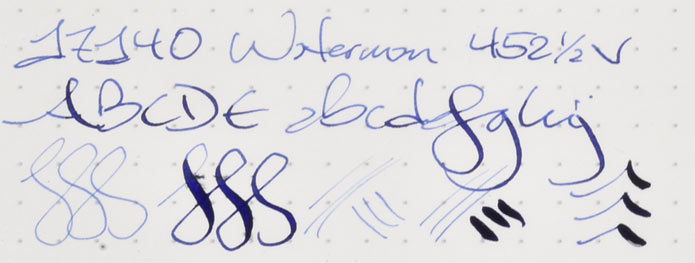 17140 Waterman 452½V
ABCDE abcdefghij